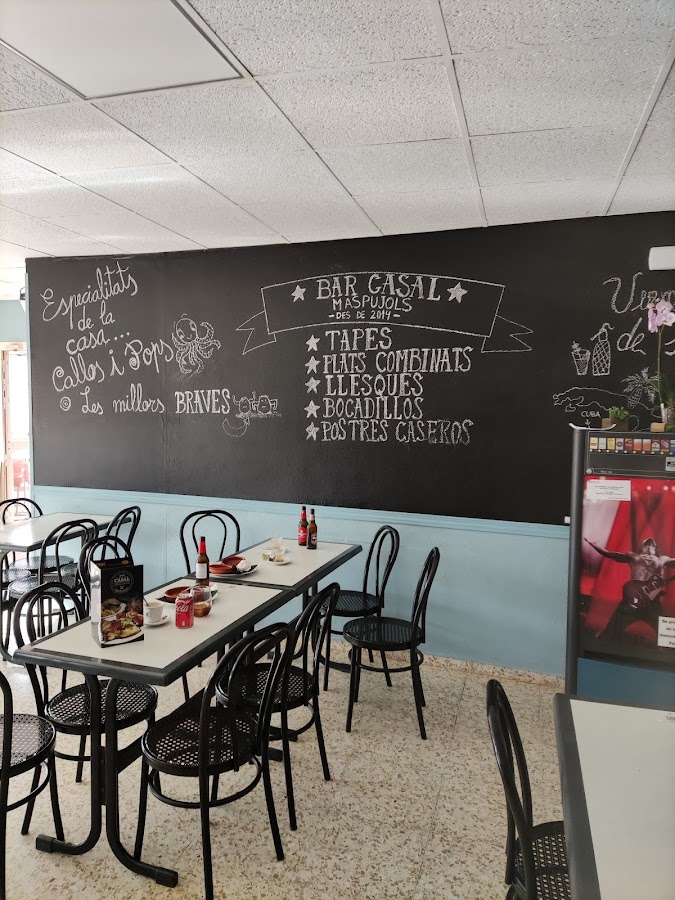 Especialitats
de la
casa...
Callos i Pops
Les millors BRAVES
BAR CASAL
MASPUJOLS
- DES DE 2014 -
TAPES
PLATS COMBINATS
LLESQUES
BOCADILLOS
POSTRES CASEROS
de
CUBA
CASAL